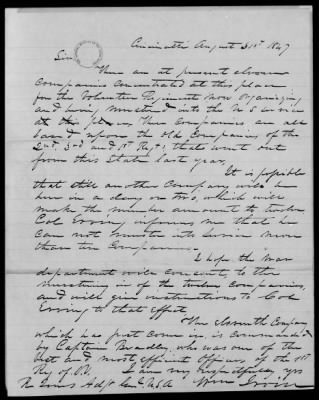 Cincinnati August 31st 1847
Sir
There are at present eleven
Companies concentrated at this place
for the Volunteer Regiment now organizing
and being mustered into the U.S. service
at this place. These Companies are all
based upon the old Companies of the
2nd 3rd and 1st Regts that went out
from this State last year,
It is possible
that still another Company will be
here in a day or two, which will
make the number amount to twelve
Col Erving informs me that he
can not muster into service more
than ten Companies.
I hope the War
department will consent to the
mustering in of the twelve companies,
and will give instructions to Col
Erving to that effect,
The eleventh Company
which has just come in, is commanded
by Captain Bradley, who was one of the
best and most efficient Officers of the 1st
Reg of O.V. I am very respectfully yrs
R Jones Adjt Genl U.S.A Wm Irvin